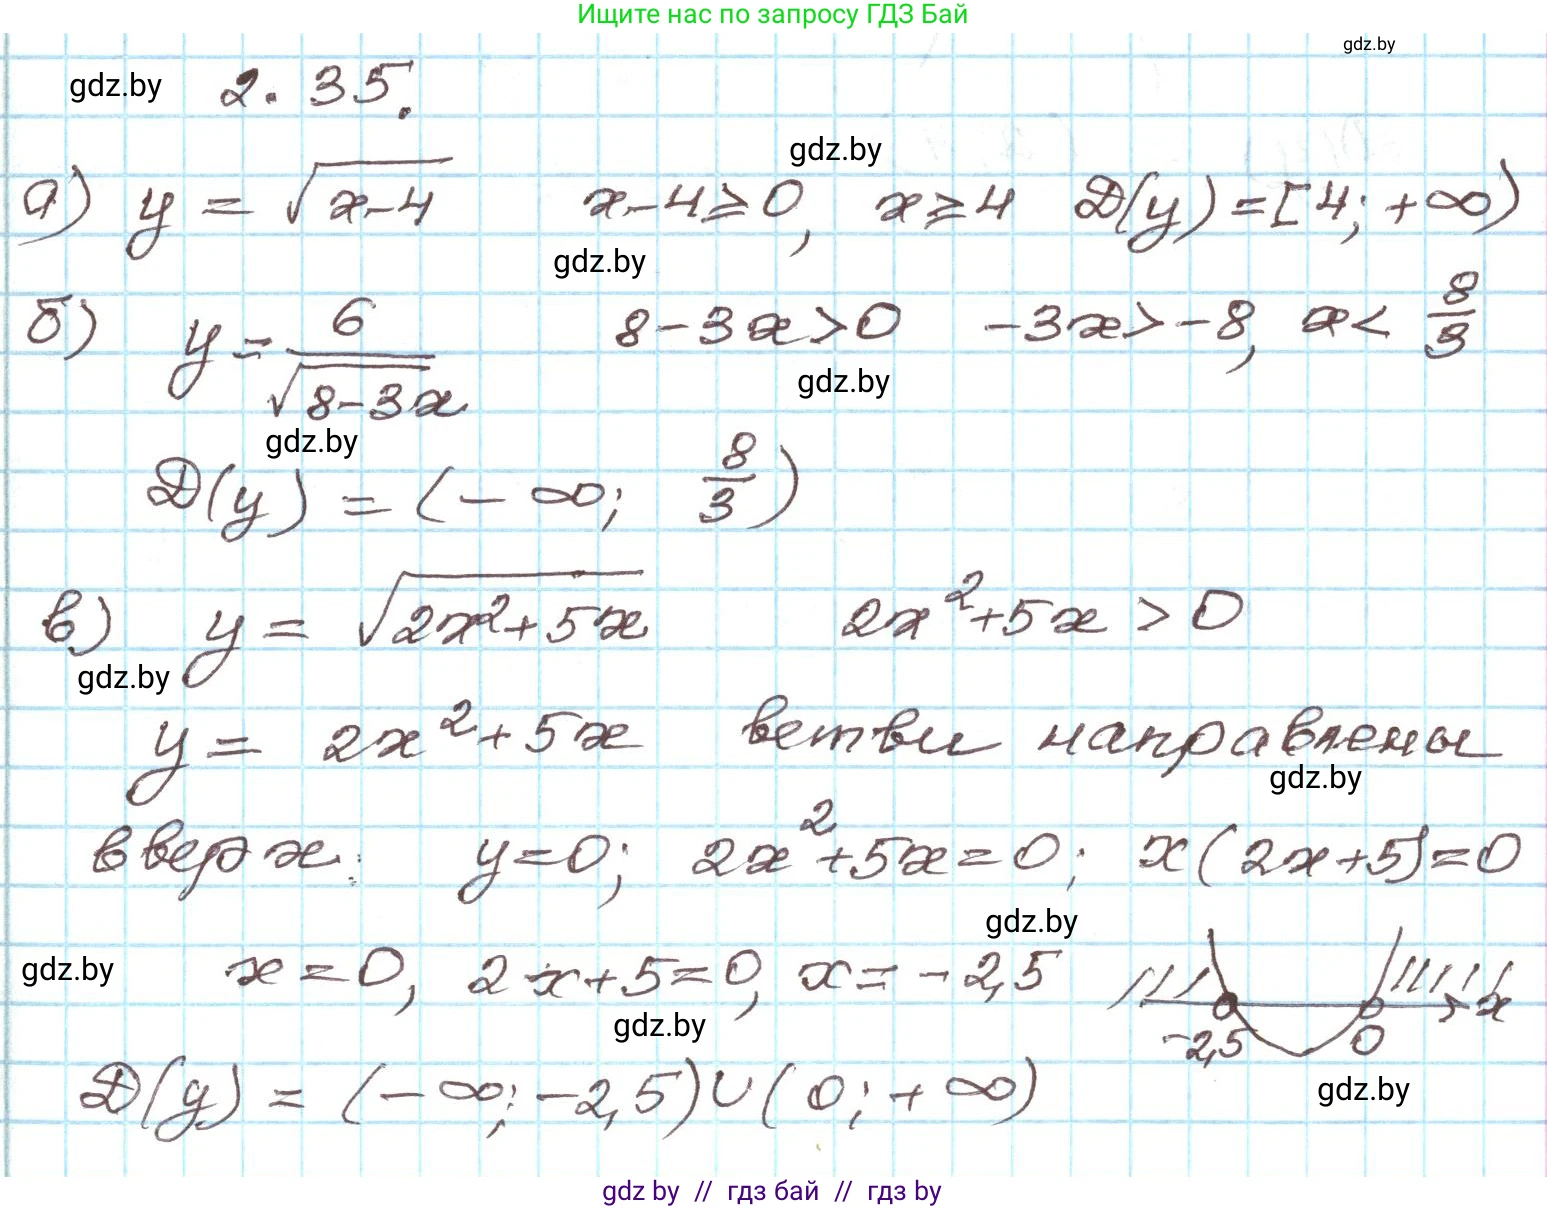 Ищите нас по запросу ГДЗ Бай
gdz.by
gdz.by 2.35.
gdz.by
а) y = √(x-4) x-4⩾0, x⩾4 D(y)=[4; +∞)
gdz.by
б) y = 6/√(8-3x) 8-3x>0 -3x>-8, x< 8/3
gdz.by
gdz.by
D(y) = (-∞; 8/3)
в) y = √(2x²+5x) 2x²+5x > 0
gdz.by
y = 2x²+5x ветви направлены
gdz.by
вверх: y=0; 2x²+5x=0; x(2x+5)=0
gdz.by
gdz.by x=0, 2x+5=0, x=-2,5
x
gdz.by
-2,5 0
D(y) = (-∞; -2,5)∪(0; +∞)
gdz.by
gdz by // гдз бай // гдз by